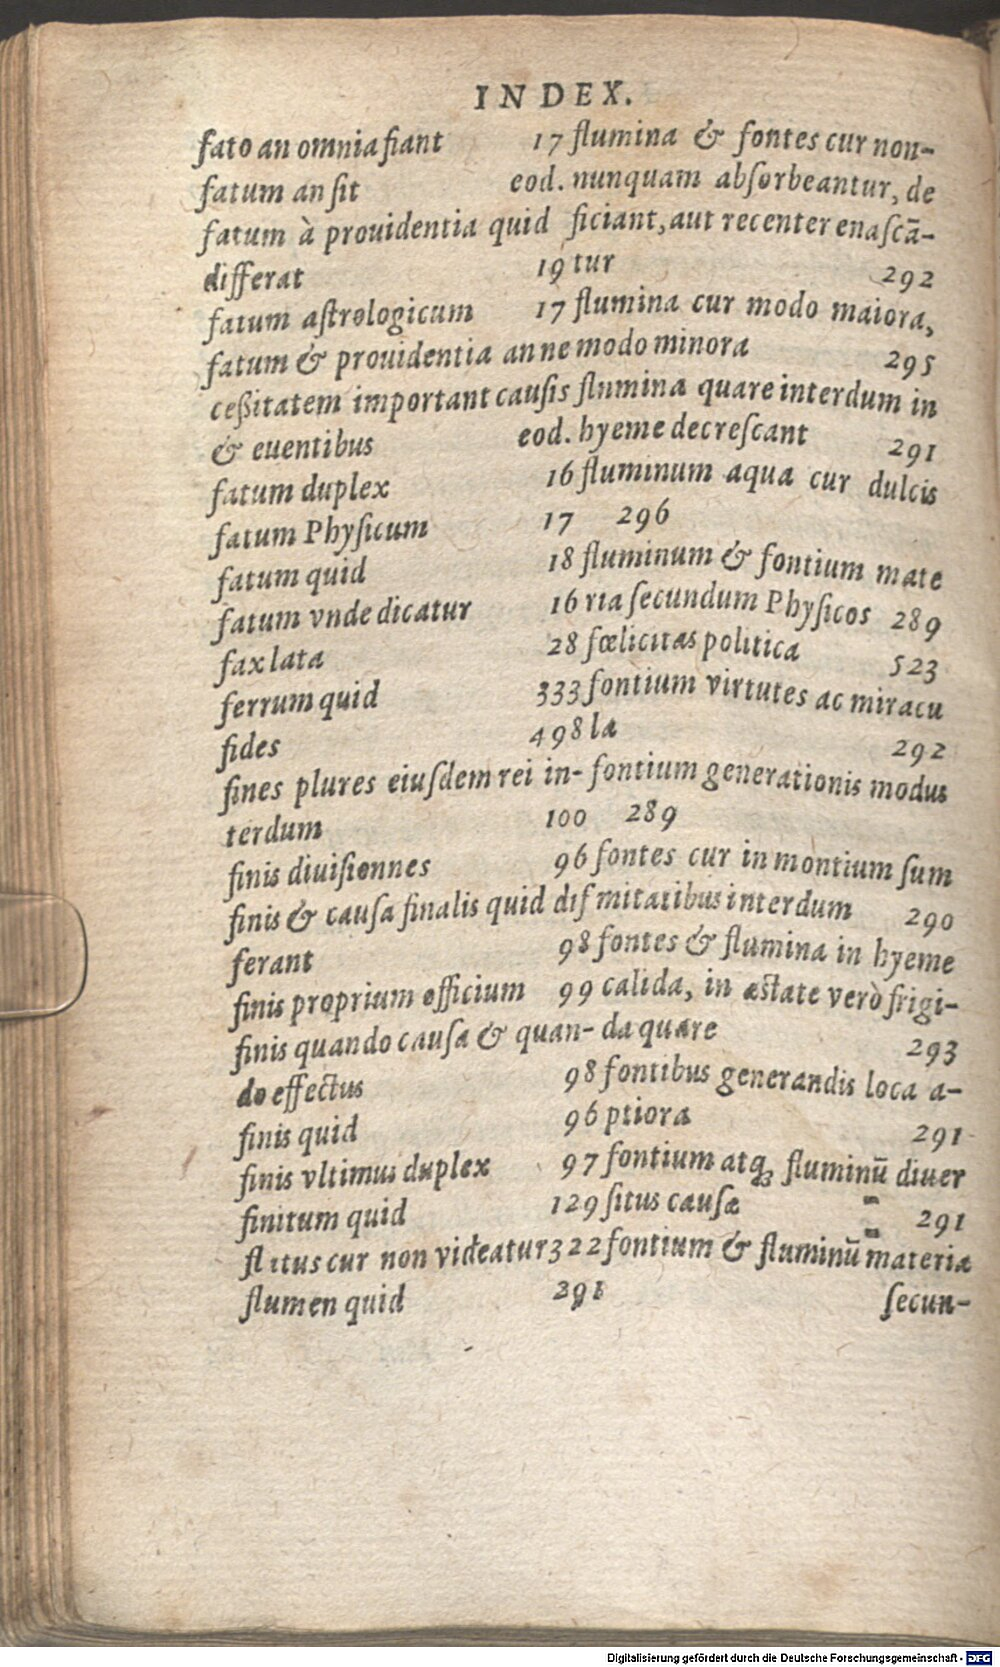 INDEX.
fato an omnia fiant 17
fatum an ſit eod.
fatum à prouidentia quid
differat 19
fatum aſtrologicum 17
fatum & prouidentia an ne
ceßitatem important cauſis
& euentibus eod.
fatum duplex 16
fatum Phyſicum 17
fatum quid 18
fatum vnde dicatur 16
fax lata 28
ferrum quid 333
fides 498
fines plures eiuſdem rei in-
terdum 100
finis diuiſionnes 96
finis & cauſa finalis quid dif
ferant 98
finis proprium officium 99
finis quando cauſa & quan-
do effectus 98
finis quid 96
finis vltimus duplex 97
finitum quid 129
flatus cur non videatur 322
flumen quid 291
flumina & fontes cur non-
nunquam abſorbeantur, de
ficiant, aut recenter enaſcā-
tur 292
flumina cur modo maiora,
modo minora 295
flumina quare interdum in
hyeme decreſcant 291
fluminum aqua cur dulcis
296
fluminum & fontium mate
ria ſecundum Phyſicos 289
fœlicitas politica 523
fontium virtutes ac miracu
la 292
fontium generationis modus
289
fontes cur in montium ſum
mitatibus interdum 290
fontes & flumina in hyeme
calida, in æſtate verò frigi-
da quare 293
fontibus generandis loca a-
ptiora 291
fontium atqꝫ fluminū diuer
ſitus cauſæ 291
fontium & fluminū materia
ſecun-
Digitalisierung gefördert durch die Deutsche Forschungsgemeinschaft - DFG